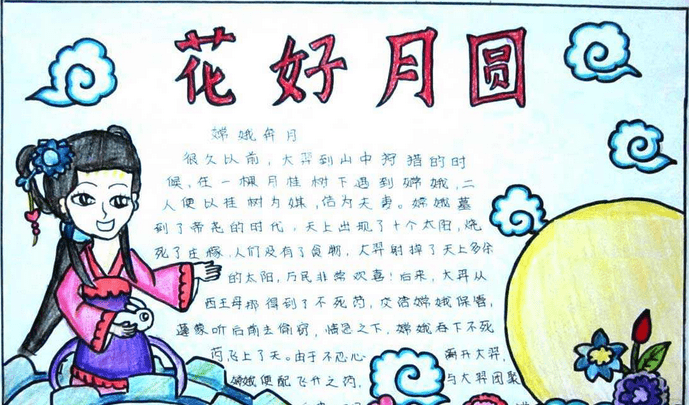 花好月圆
嫦娥奔月
很久以前，大羿到山中狩猎的时
候，在一棵月桂树下遇到嫦娥，二
人便以桂树为媒，结为夫妻。嫦娥墓
到了帝尧的时代，天上出现了十个太阳，烧
死了庄稼，人们没有了食物，大羿射掉了天上多余
的太阳，万民非常欢喜！后来，大羿从
西王母那得到了不死药，交给嫦娥保管，
蓬蒙听后前去偷窃，情急之下，嫦娥吞下不死
药飞上了天。由于不忍心 离开大羿，
嫦娥便配飞升之药， 与大羿团聚